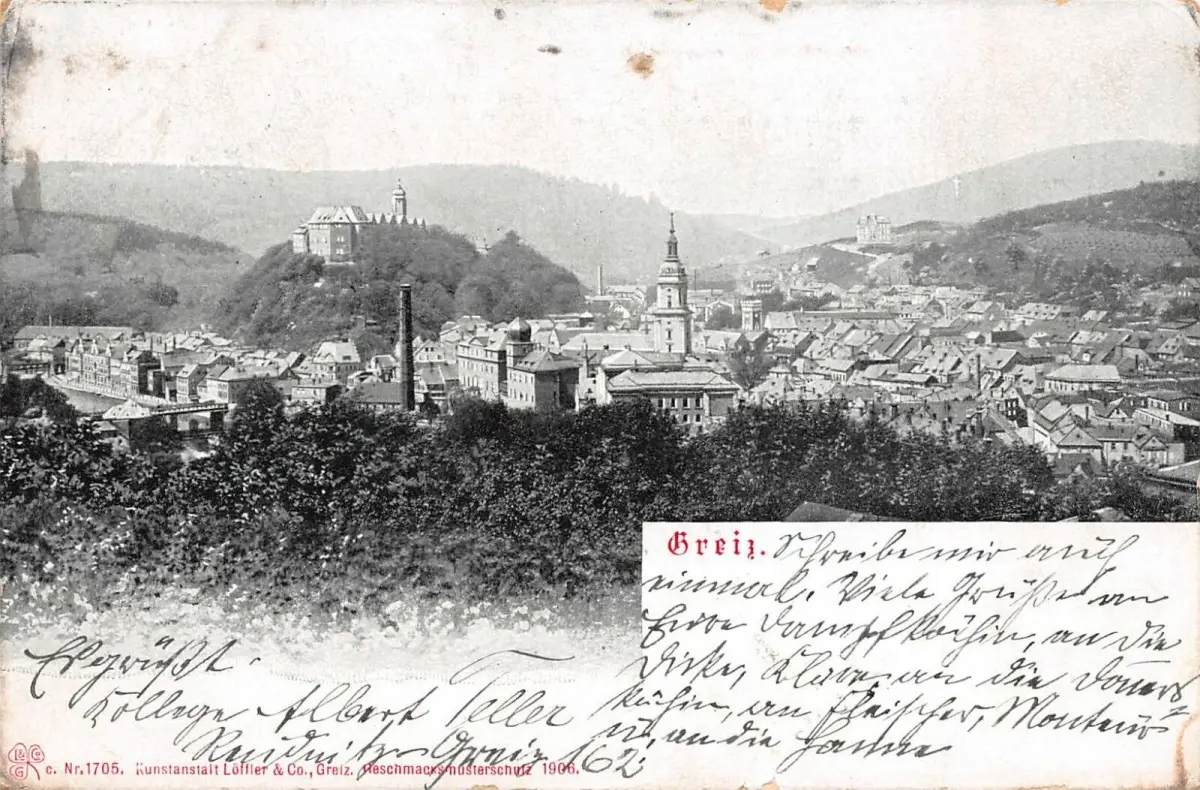 Greiz. Schreibe mir auch
einmal. Viele Grüße an
Eure Dampfköchin, an die
Dicke, Klara, an die Dauer=
köchin, an Fleischer, Monteur
u. an die Hanne
Es grüßt
Kollege Albert Teller
Greiz 162.
c. Nr. 1705. Kunstanstalt Löffler & Co., Greiz. Geschmacksmusterschutz 1906.